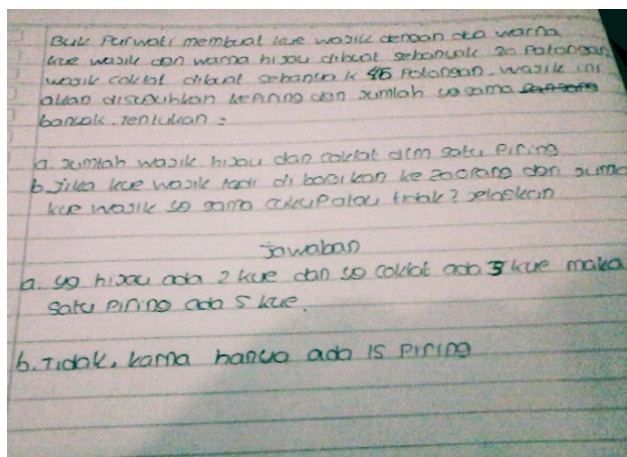 Buk Purwati membuat kue wajik dengan dua warna
kue wajik dan warna hijau dibuat sebanyak 30 Potongan
wajik coklat dibuat sebanyak 45 Potongan. wajik ini
akan disuguhkan kepiring dan jumlah yg sama
banyak. Tentukan :
a. jumlah wajik hijau dan coklat dlm satu Piring
b. jika kue wajik tadi di bagikan ke 20 orang dan jumla
kue wajik yg sama cukup atau tidak? jelaskan
jawaban
a. yg hijau ada 2 kue dan yg coklat ada 3 kue maka
satu Piring ada 5 kue.
b. Tidak, karna hanya ada 15 Piring